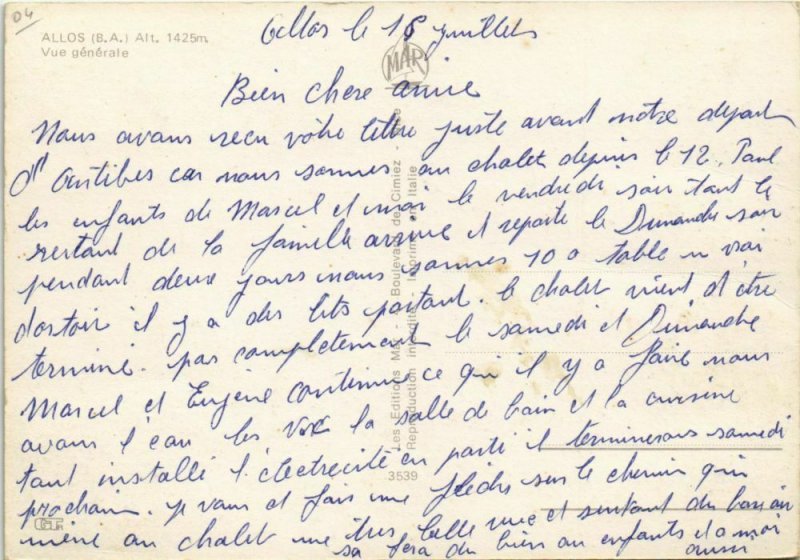 04
ALLOS (B.A.) Alt. 1425m.
Vue générale
MAR
Allos le 18 juillets
Bien chere amie
Nous avons recu vôtre lettre juste avant notre départ
d'Antibes car nous sommes au chalet depuis le 12. Paul
les enfants de Marcel et moi le vendredi soir tant le
restant de la famille arrive et reparte le Dimanche soir
pendant deux jours nous sommes 10 a table un vrai
dortoir il y a des lits partout. le chalet vient d'être
terminé. pas completement le samedi et Dimanche
Marcel et Eugène continue ce qu'il y a faire nous
avons l'eau les WC la salle de bain et la cuisine
tant installé l'électrecité en parti il terminerons samedi
prochain. je vous et fais une flèche sur le chemin qui
mène au chalet une très belle vue et surtout du bon air
sa fera du bien au enfants et a moi
aussi
Les Editions Mar - Boulevard de Cimiez - Nice
Reproduction interdite - Imprimé en Italie
3539